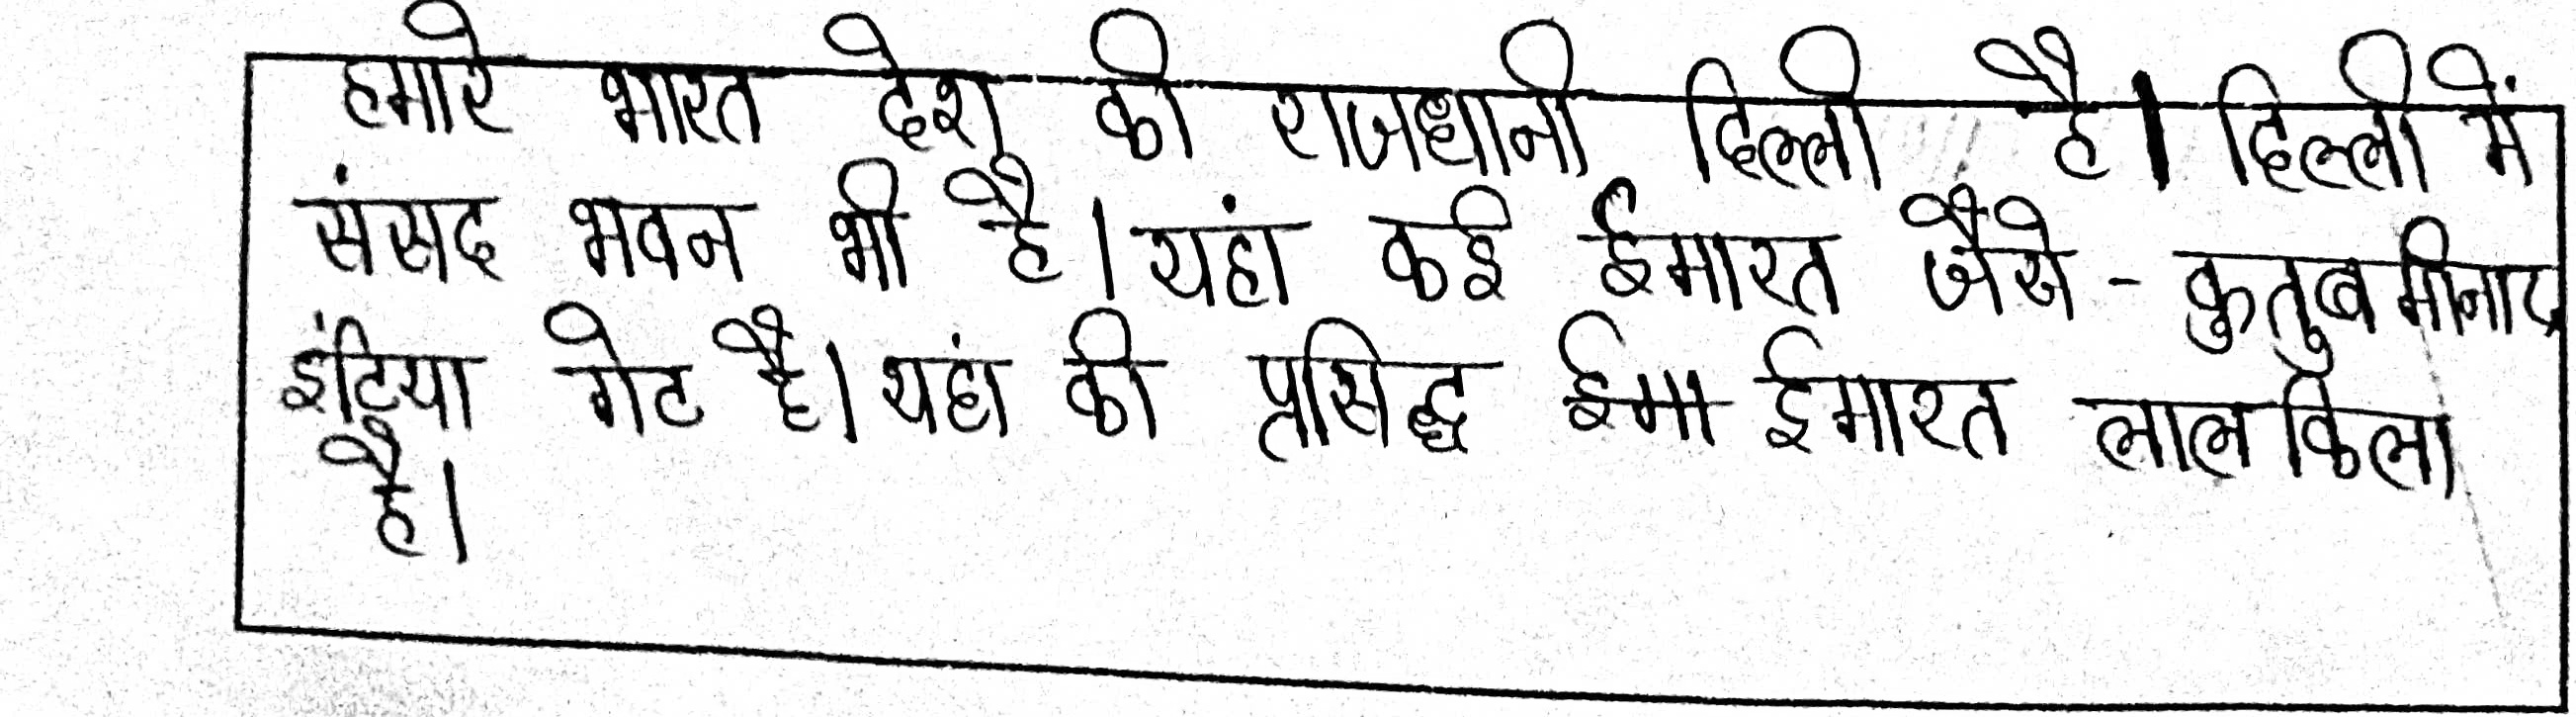 हमारे भारत देश की राजधानी दिल्ली है। दिल्ली में
संसद भवन भी है। यहां कई ईमारत जैसे - कुतुब मीनार
इंडिया गेट है। यहां की प्रसिद्ध ईमा ईमारत लाल किला
है।